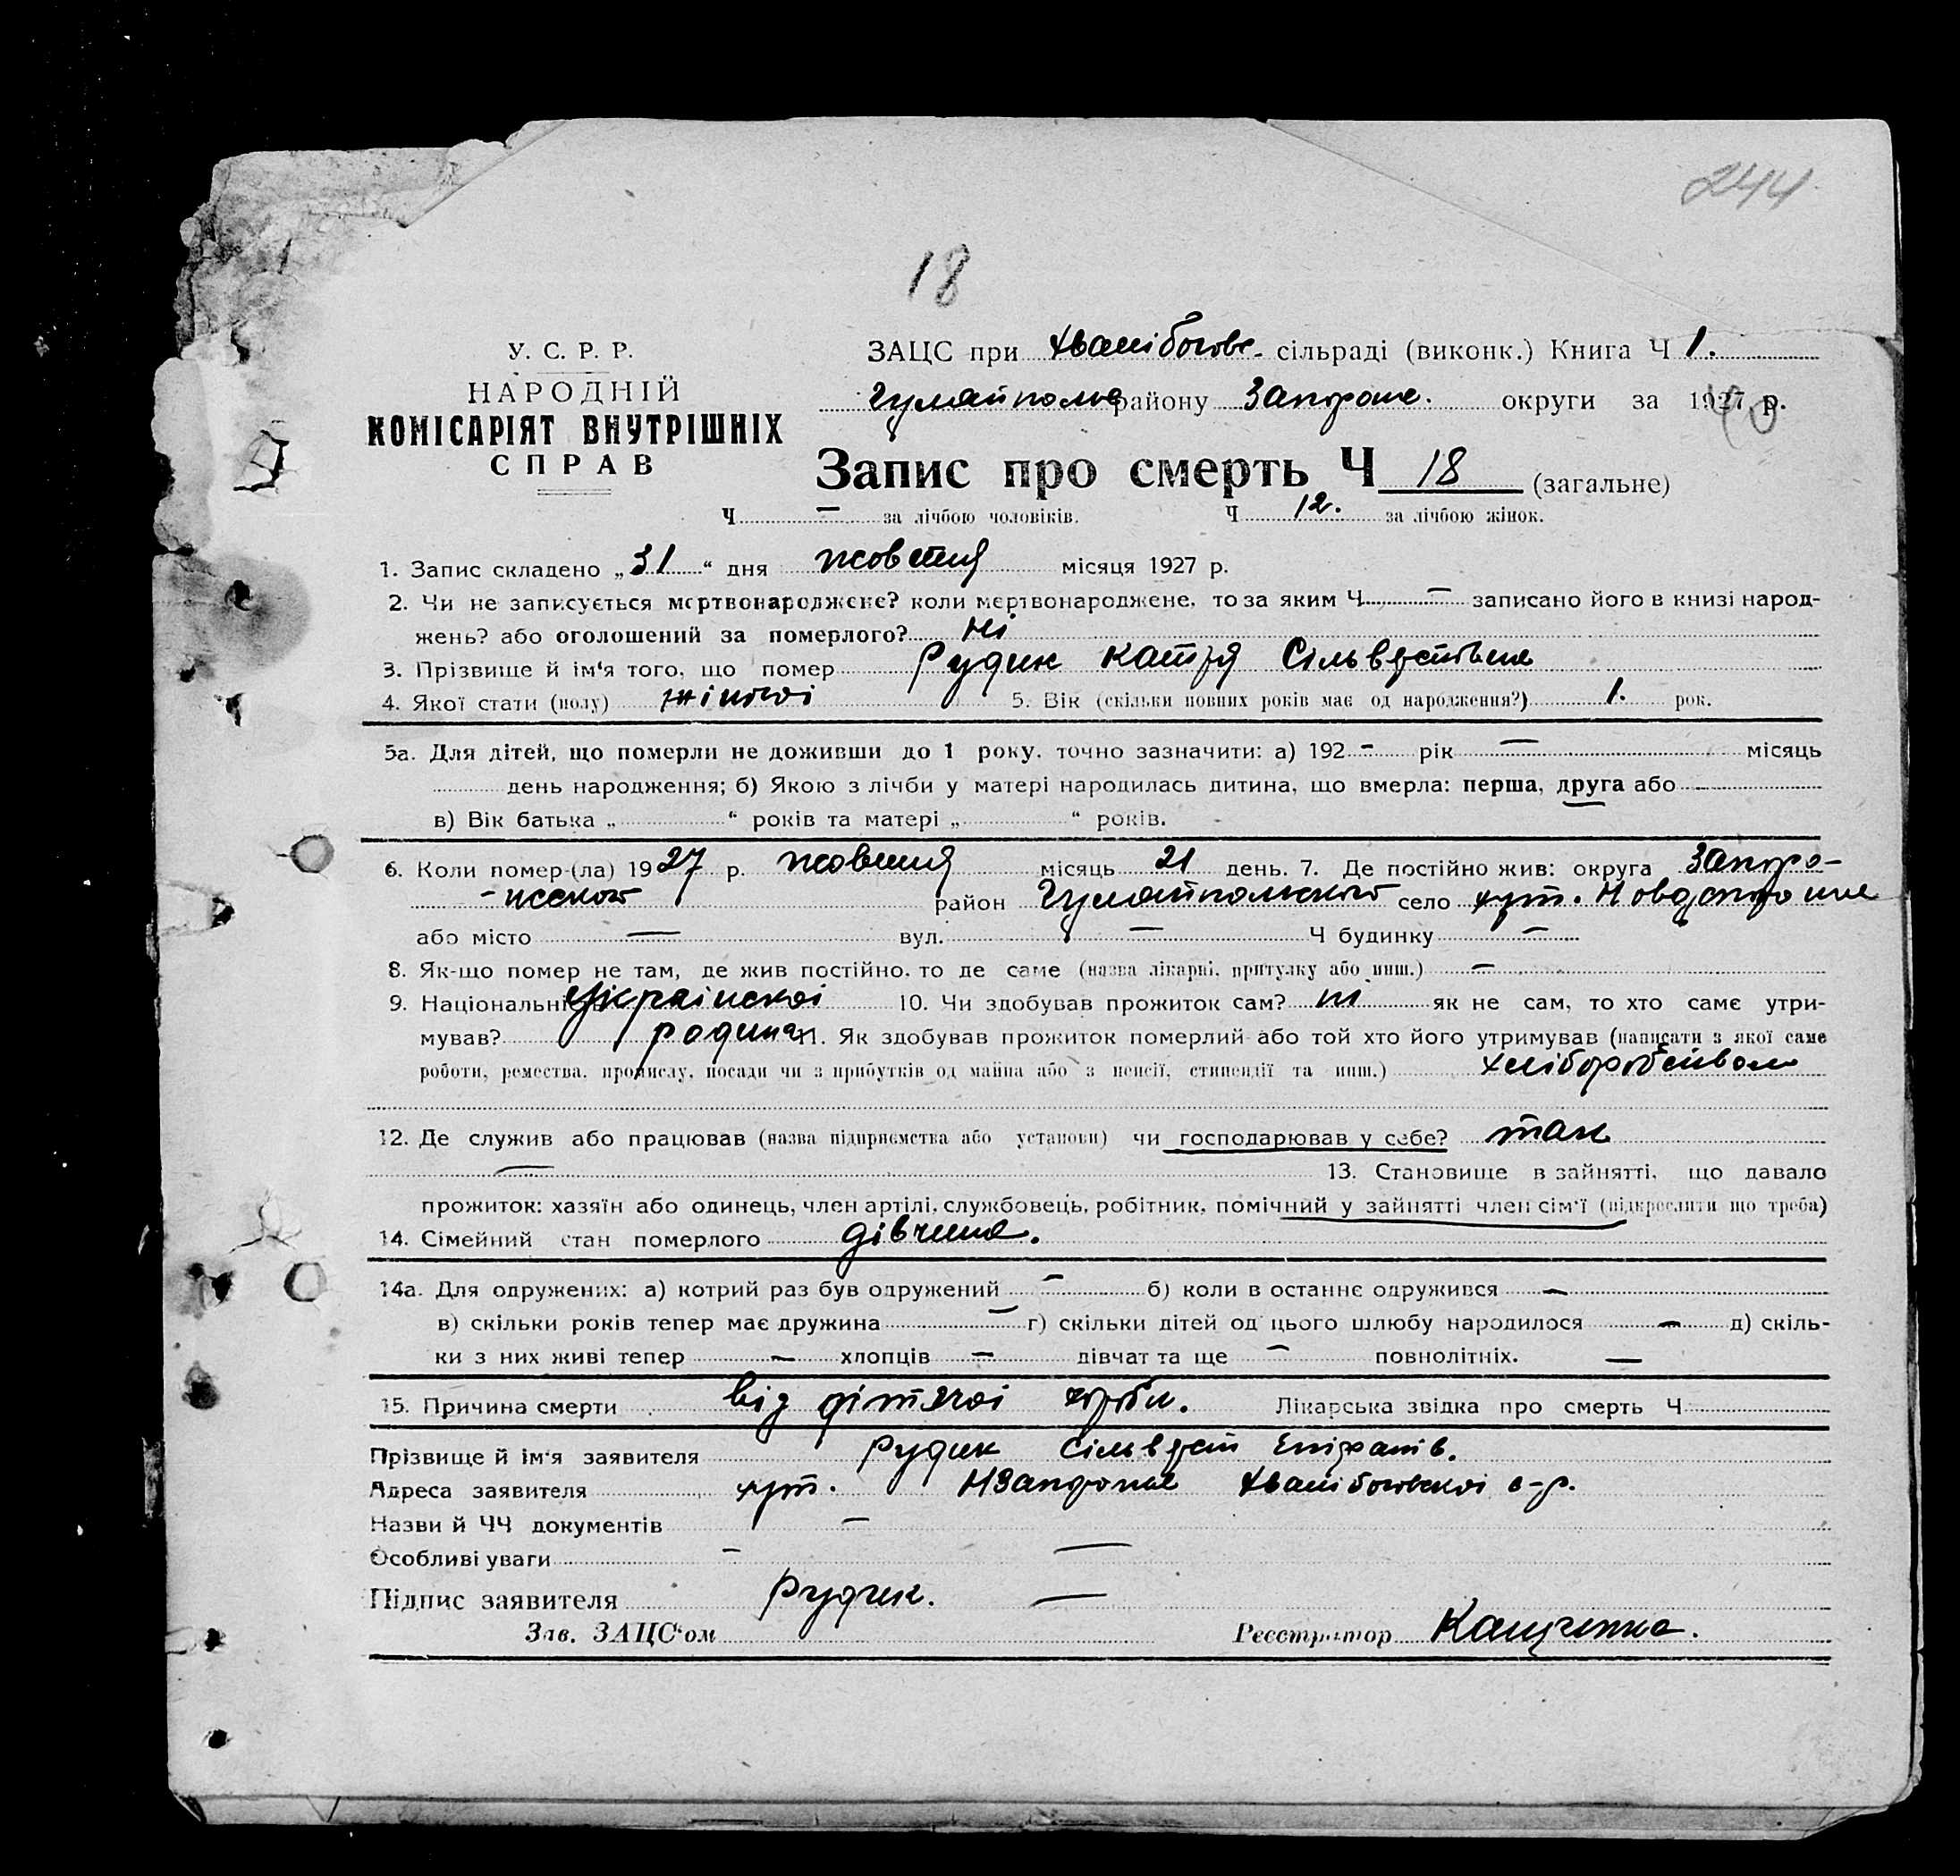 244
18
У. С. Р. Р.
НАРОДНІЙ
КОМІСАРІЯТ ВНУТРІШНІХ
СПРАВ
ЗАЦС при Хвалібогове- сільраді (виконк.) Книга Ч 1.
Гуляйполье району Запороже. округи за 1927 р.
Запис про смерть Ч 18 (загальне)
Ч — за лічбою чоловіків. Ч 12. за лічбою жінок.
1. Запис складено „31“ дня жовтня місяця 1927 р.
2. Чи не записується мертвонароджене? коли мертвонароджене, то за яким Ч — записано його в книзі народ-
жень? або оголошений за померлого? Ні
3. Прізвище й ім'я того, що помер Рудик Катря Сільвестівна
4. Якої стати (полу) жіночоі 5. Вік (скільки повних років має од народження?) 1. рок.
5а. Для дітей, що померли не доживши до 1 року, точно зазначити: а) 192 - рік — місяць
день народження; б) Якою з лічби у матері народилась дитина, що вмерла: перша, друга або
в) Вік батька „ “ років та матері „ “ років.
6. Коли помер-(ла) 1927 р. жовтня місяць 21 день. 7. Де постійно жив: округа Запоро-
-жськой район Гуляйпольского село хут. Новозапорожже
або місто — вул. — Ч будинку —
8. Як-що помер не там, де жив постійно, то де саме (назва лікарні, притулку або инш.) —
9. Національність Украінскоі 10. Чи здобував прожиток сам? ні як не сам, то хто саме утри-
мував? родина 11. Як здобував прожиток померлий або той хто його утримував (написати з якої саме
роботи, ремества, промислу, посади чи з прибутків од майна або з пенсії, стипендії та инш.) хліборобством
12. Де служив або працював (назва підприємства або установи) чи господарював у себе? так
— 13. Становище в зайнятті, що давало
прожиток: хазяїн або одинець, член артілі, службовець, робітник, помічний у зайнятті член сім'ї (підкреслити що треба)
14. Сімейний стан померлого дівчина.
14а. Для одружених: а) котрий раз був одружений — б) коли в останнє одружився —
в) скільки років тепер має дружина — г) скільки дітей од цього шлюбу народилося — д) скіль-
ки з них живі тепер — хлопців — дівчат та ще — повнолітніх. —
15. Причина смерти від дітячоі хороби. Лікарська звідка про смерть Ч
Прізвище й ім'я заявителя Рудик Сільвест Епіфанів.
Адреса заявителя хут. НЗапорожже Хвалібоговскоі с-р.
Назви й ЧЧ документів —
Особливі уваги — —
Підпис заявителя Рудик. —
Зав. ЗАЦС'ом Реєстратор